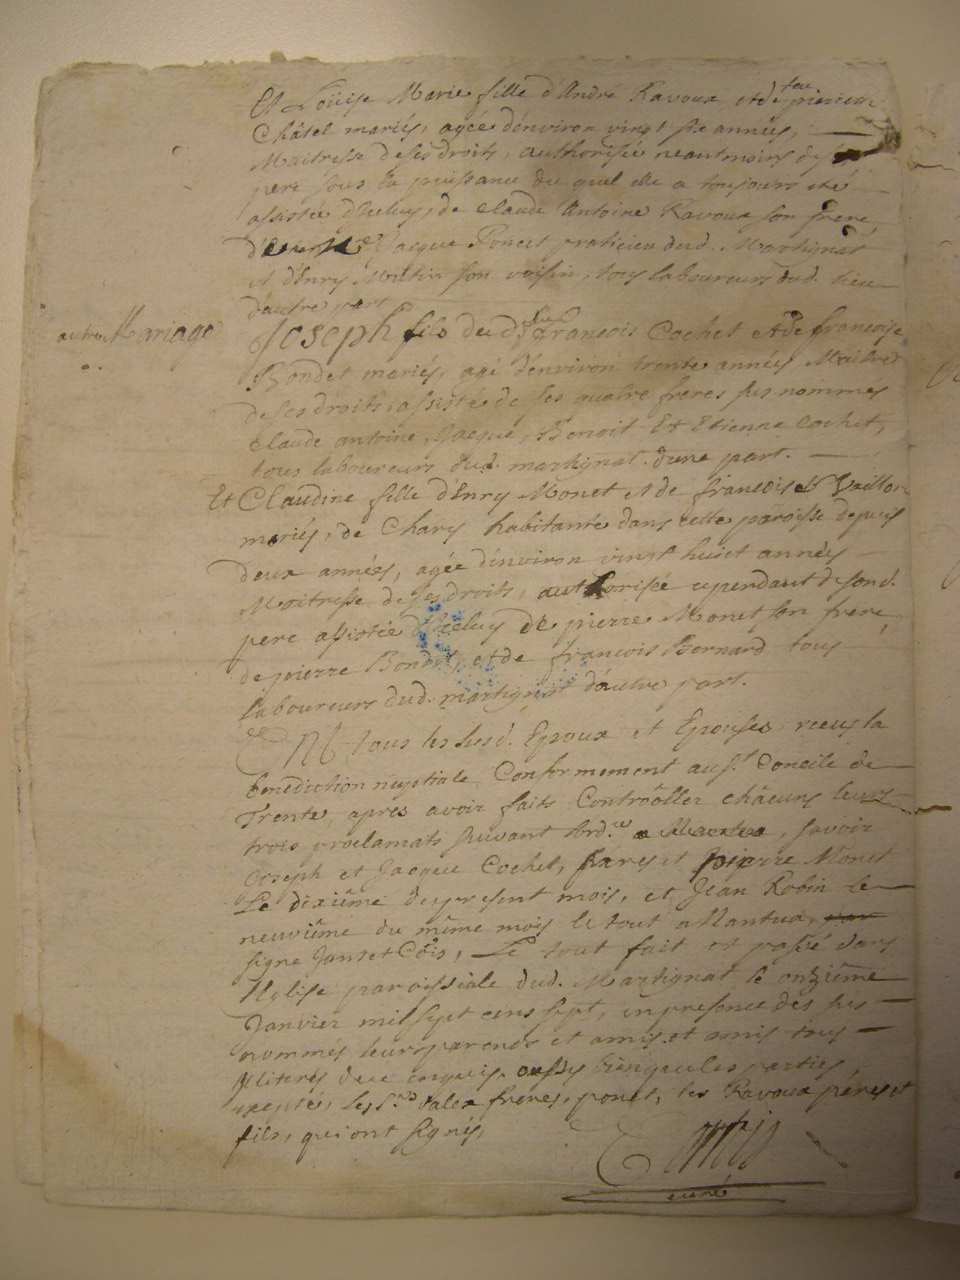 Et Loüise Marie fille d'André Ravoux et de feu pierrette
Châtel mariés, agée d'environ vingt six années,
Maitresse de ses droits, authorisée neantmoins de son
pere sous la puissance du quel elle a toujours eté
assistée d'Iceluy, de Claude Antoine Ravoux son frere
Jacque Poncet praticien dud. Martignat
et d'Enry Moutin son voisin, tous laboureurs dud. lieu
d'autre part
autre Mariage
Joseph fils de feu françois Cochet et de françoise
Bondet mariés, agé d'environ trente années Maitre
de ses droits assisté de ses quatre freres sus nommes
Claude antoine Jacque, Benoit Et Etienne Cochet,
tous laboureurs dud. martignat d'une part.
Et Claudine fille d'Enry Monet et de françoise Vaillon
mariés, de Chary habitante dans cette paroisse depuis
deux années, agée d'environ vingt huict années
Maitresse de ses droits, authorisée cependant de sond.
pere assistée d'Iceluy de pierre Monet son frere,
de pierre Bondet, et de françois Bernard tous
laboureurs dud. martignat d'autre part.
Ont tous les susd. Epoux et Epouses receus la
benediction nuptiale Conformement au st. Concile de
Trente, apres avoir faits Controoller châcuns leurs
trois proclamats suivant l'ord.ce a Nantua, savoir
Joseph et Jacque Cochet, freres et pierre Monet
Le dixiême du present mois, et Jean Robin le
neuviême du même mois le tout a Nantua,
signé Le tout fait et passé dans
l'Eglise paroissiale dud. Martignat le onziême
Janvier mil sept cens sept, en presence des sus
nommés leurs parends et amis et amis tous
illiteres de ce enquis aussy bien que les parties,
excepté, les freres, poncet, les Ravoux péres et
fils, qui ont signés,
curé